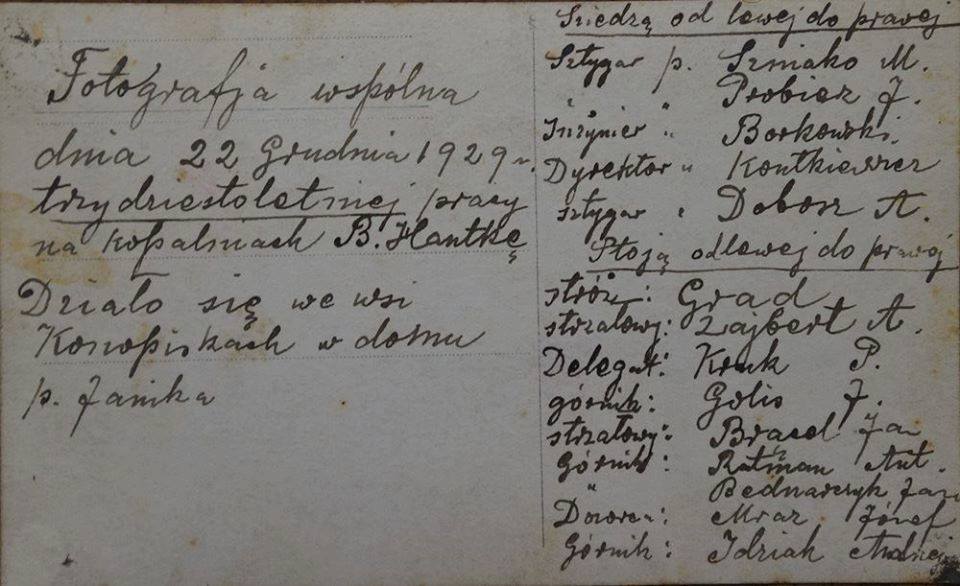 Fotografja wspólna
dnia 22 Grudnia 1929 r.
trzydziestoletniej pracy
na kopalniach B. Hantkę
Działo się we wsi
Konopiskach w domu
p. Janika
Siedzą od lewej do prawej
Sztygar p. Szniako M.
" " Probierz J.
Inżynier " Borkowski.
Dyrektor " Kontkiewicz
sztygar " Dobosz A.
Stoją od lewej do prawej
stróż: Grad
strzałowy: Zajbert A.
Delegat: Kruk P.
górnik: Golis J.
strzałowy: Brącel Jan
Górnik: Ratman Ant.
" Bednarczyk Jan
Dozorca: Mraz Józef
Górnik: Idziak Andrzej